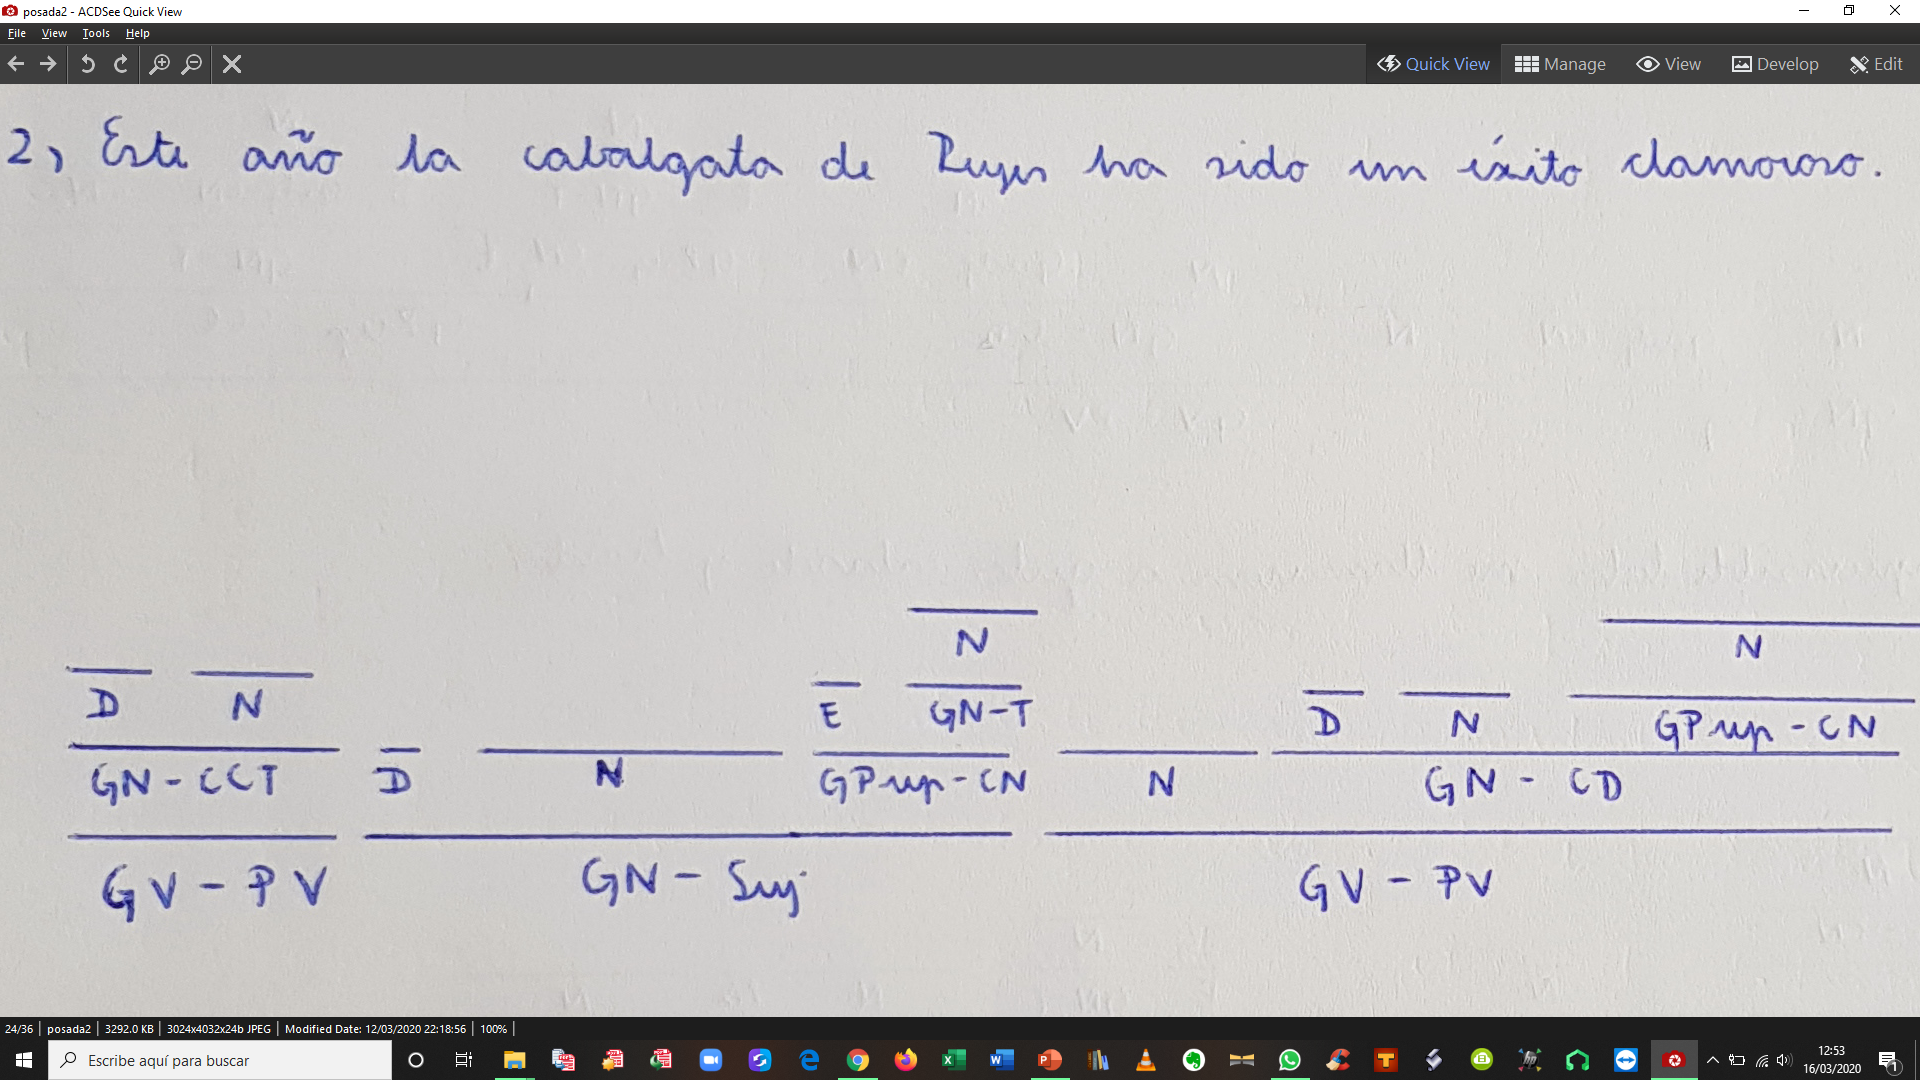 posada2 - ACDSee Quick View
File View Tools Help
Quick View Manage View Develop Edit
2, Este año la cabalgata de Reyes ha sido un éxito clamoroso.
N
N
D N E GN-T D N GPrep-CN
GN-CCT D N GPrep-CN N GN - CD
GV - PV GN - Suj GV - PV
24/36 posada2 3292.0 KB 3024x4032x24b JPEG Modified Date: 12/03/2020 22:18:56 100%
Escribe aquí para buscar
12:53
16/03/2020
1